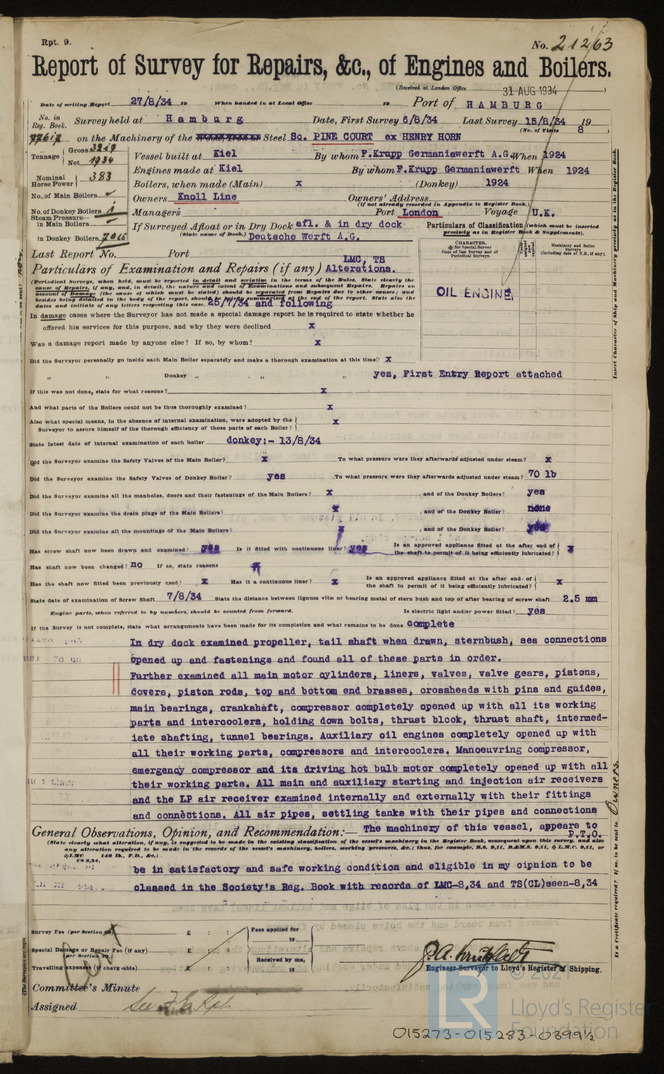 Rpt. 9.
No. 21263
Report of Survey for Repairs, &c., of Engines and Boilers.
(Received at London Office 31 AUG 1934
Date of writing Report 27/8/34 19 When handed in at Local Office 19 Port of HAMBURG
No. in Reg. Book. Survey held at Hamburg Date, First Survey 6/8/34 Last Survey 15/8/34 19
(No. of Visits 8
on the Machinery of the Steel Sc. PINE COURT ex HENRY HORN
Tonnage Gross 3219 Net 1934
Vessel built at Kiel By whom F.Krupp Germaniawerft A.G. When 1924
Engines made at Kiel By whom F.Krupp Germaniawerft When 1924
Nominal Horse Power 383
Boilers, when made (Main) x (Donkey) 1924
No. of Main Boilers
Owners Knoll Line Owners' Address
(if not already recorded in Appendix to Register Book.)
No. of Donkey Boilers
Managers Port London Voyage U.K.
Steam Pressure in Main Boilers
If Surveyed Afloat or in Dry Dock afl. & in dry dock
(State name of Dock.) Deutsche Werft A.G.
in Donkey Boilers
Particulars of Classification (which must be inserted precisely as in Register Book & Supplements).
Last Report No. Port
LMC, TS
Particulars of Examination and Repairs (if any) Alterations.
OIL ENGINE.
25/7/34 and following
In damage cases where the Surveyor has not made a special damage report he is required to state whether he
offered his services for this purpose, and why they were declined x
Was a damage report made by anyone else? If so, by whom? x
Did the Surveyor personally go inside each Main Boiler separately and make a thorough examination at this time? x
" Donkey " " " yes, First Entry Report attached
If this was not done, state for what reasons? x
And what parts of the Boilers could not be thus thoroughly examined? x
Also what special means, in the absence of internal examination, were adopted by the
Surveyor to assure himself of the thorough efficiency of those parts of each Boiler? x
State latest date of internal examination of each boiler donkey:- 13/8/34
Did the Surveyor examine the Safety Valves of the Main Boiler? x To what pressure were they afterwards adjusted under steam? x
Did the Surveyor examine the Safety Valves of Donkey Boiler? yes To what pressure were they afterwards adjusted under steam? 70 lb
Did the Surveyor examine all the manholes, doors and their fastenings of the Main Boilers? x , and of the Donkey Boiler? yes
Did the Surveyor examine the drain plugs of the Main Boilers? x , and of the Donkey Boiler? none
Did the Surveyor examine all the mountings of the Main Boilers? x , and of the Donkey Boiler? yes
Has screw shaft now been drawn and examined? yes Is it fitted with continuous liner? yes Is an approved appliance fitted at the after end of the shaft to permit of it being efficiently lubricated? x
Has shaft now been changed? no If so, state reasons
Has the shaft now fitted been previously used? x Has it a continuous liner? x Is an approved appliance fitted at the after end of the shaft to permit of it being efficiently lubricated? x
State date of examination of Screw Shaft 7/8/34 State the distance between lignum vitæ or bearing metal of stern bush and top of after bearing of screw shaft 2.5 mm
Engine parts, when referred to by numbers, should be counted from forward. Is electric light and/or power fitted? yes
If the Survey is not complete, state what arrangements have been made for its completion and what remains to be done complete
In dry dock examined propeller, tail shaft when drawn, sternbush, sea connections
opened up and fastenings and found all of these parts in order.
Further examined all main motor cylinders, liners, valves, valve gears, pistons,
covers, piston rods, top and bottom end brasses, crosheads with pins and guides,
main bearings, crankshaft, compressor completely opened up with all its working
parts and intercoolers, holding down bolts, thrust block, thrust shaft, intermed-
iate shafting, tunnel bearings. Auxiliary oil engines completely opened up with
all their working parts, compressors and intercoolers. Manoeuvring compressor,
emergency compressor and its driving hot bulb motor completely opened up with all
their working parts. All main and auxiliary starting and injection air receivers
and the LP air receiver examined internally and externally with their fittings
and connections. All air pipes, settling tanks with their pipes and connections
General Observations, Opinion, and Recommendation:— The machinery of this vessel, appears to
P.T.O.
be in satisfactory and safe working condition and eligible in my oipnion to be
classed in the Society's Reg. Book with records of LMC-8,34 and TS(CL)seen-8,34
Survey Fee (per Section 29) £ : : Fees applied for 19
Special Damage or Repair Fee (if any) (per Section 29.) £ : :
Received by me, 19
Travelling Expenses (if chargeable) £ : :
Engineer Surveyor to Lloyd's Register of Shipping.
Committee's Minute
Assigned See F.E. Rpt.
LR
© 2021
Lloyd's Register
Foundation
015273-015283-0399½